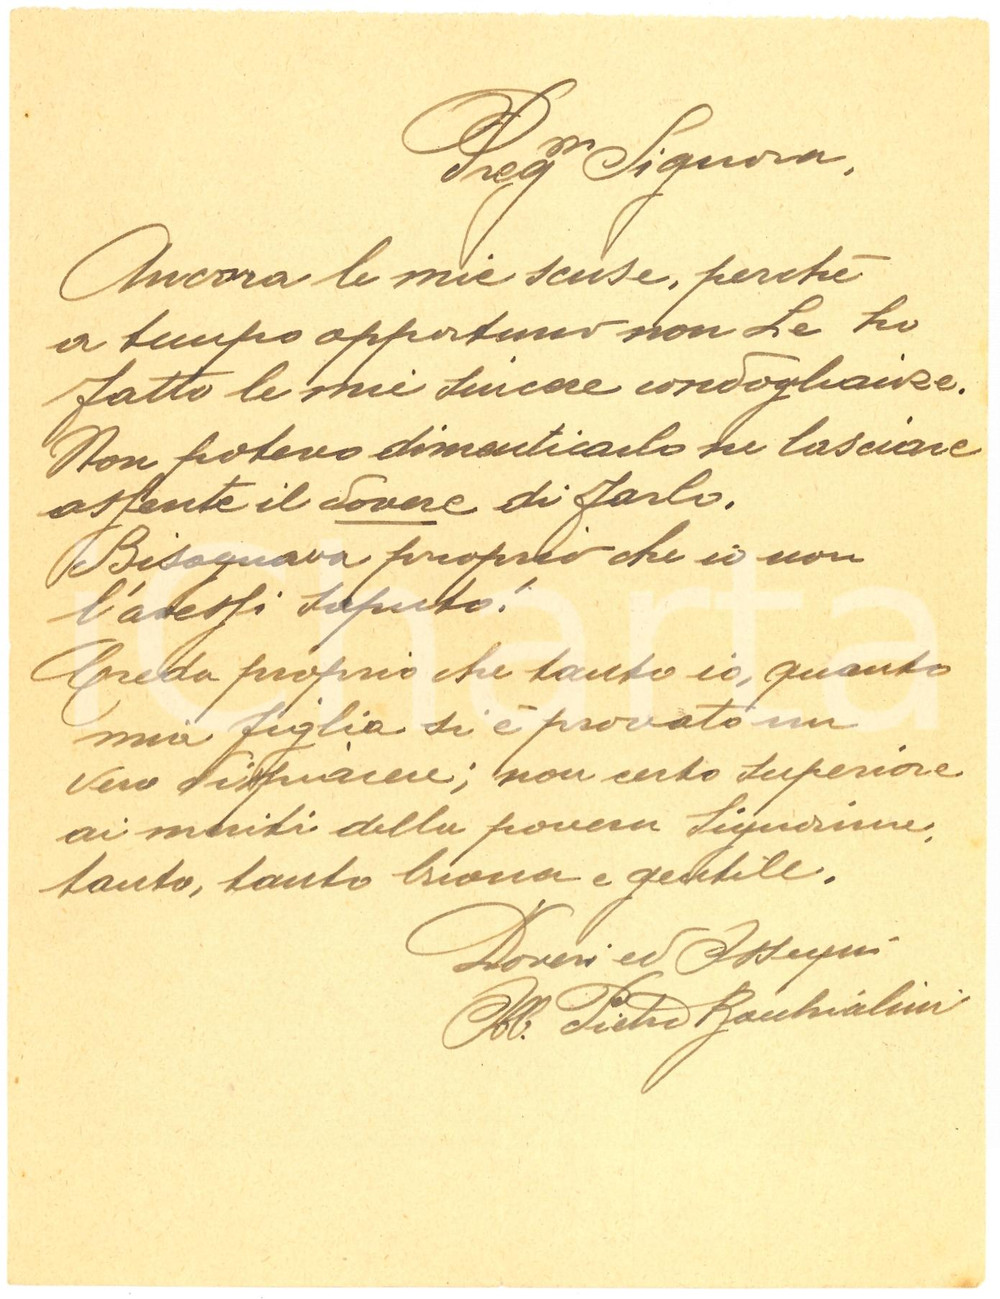 Preg.ᵐ Signora,
Ancora le mie scuse, perchè
a tempo opportuno non Le ho
fatto le mie sincere condoglianze.
Non potevo dimenticarlo ne lasciare
assente il dovere di farlo.
Bisognava proprio che io non
l'avessi saputo!
Credo proprio che tanto io, quanto
mia figlia si è provato un
vero dispiacere; non certo superiore
ai meriti della povera Signorina,
tanto, tanto buona e gentile.
Doveri ed Ossequi
Pietro Bacchialini
iCharta